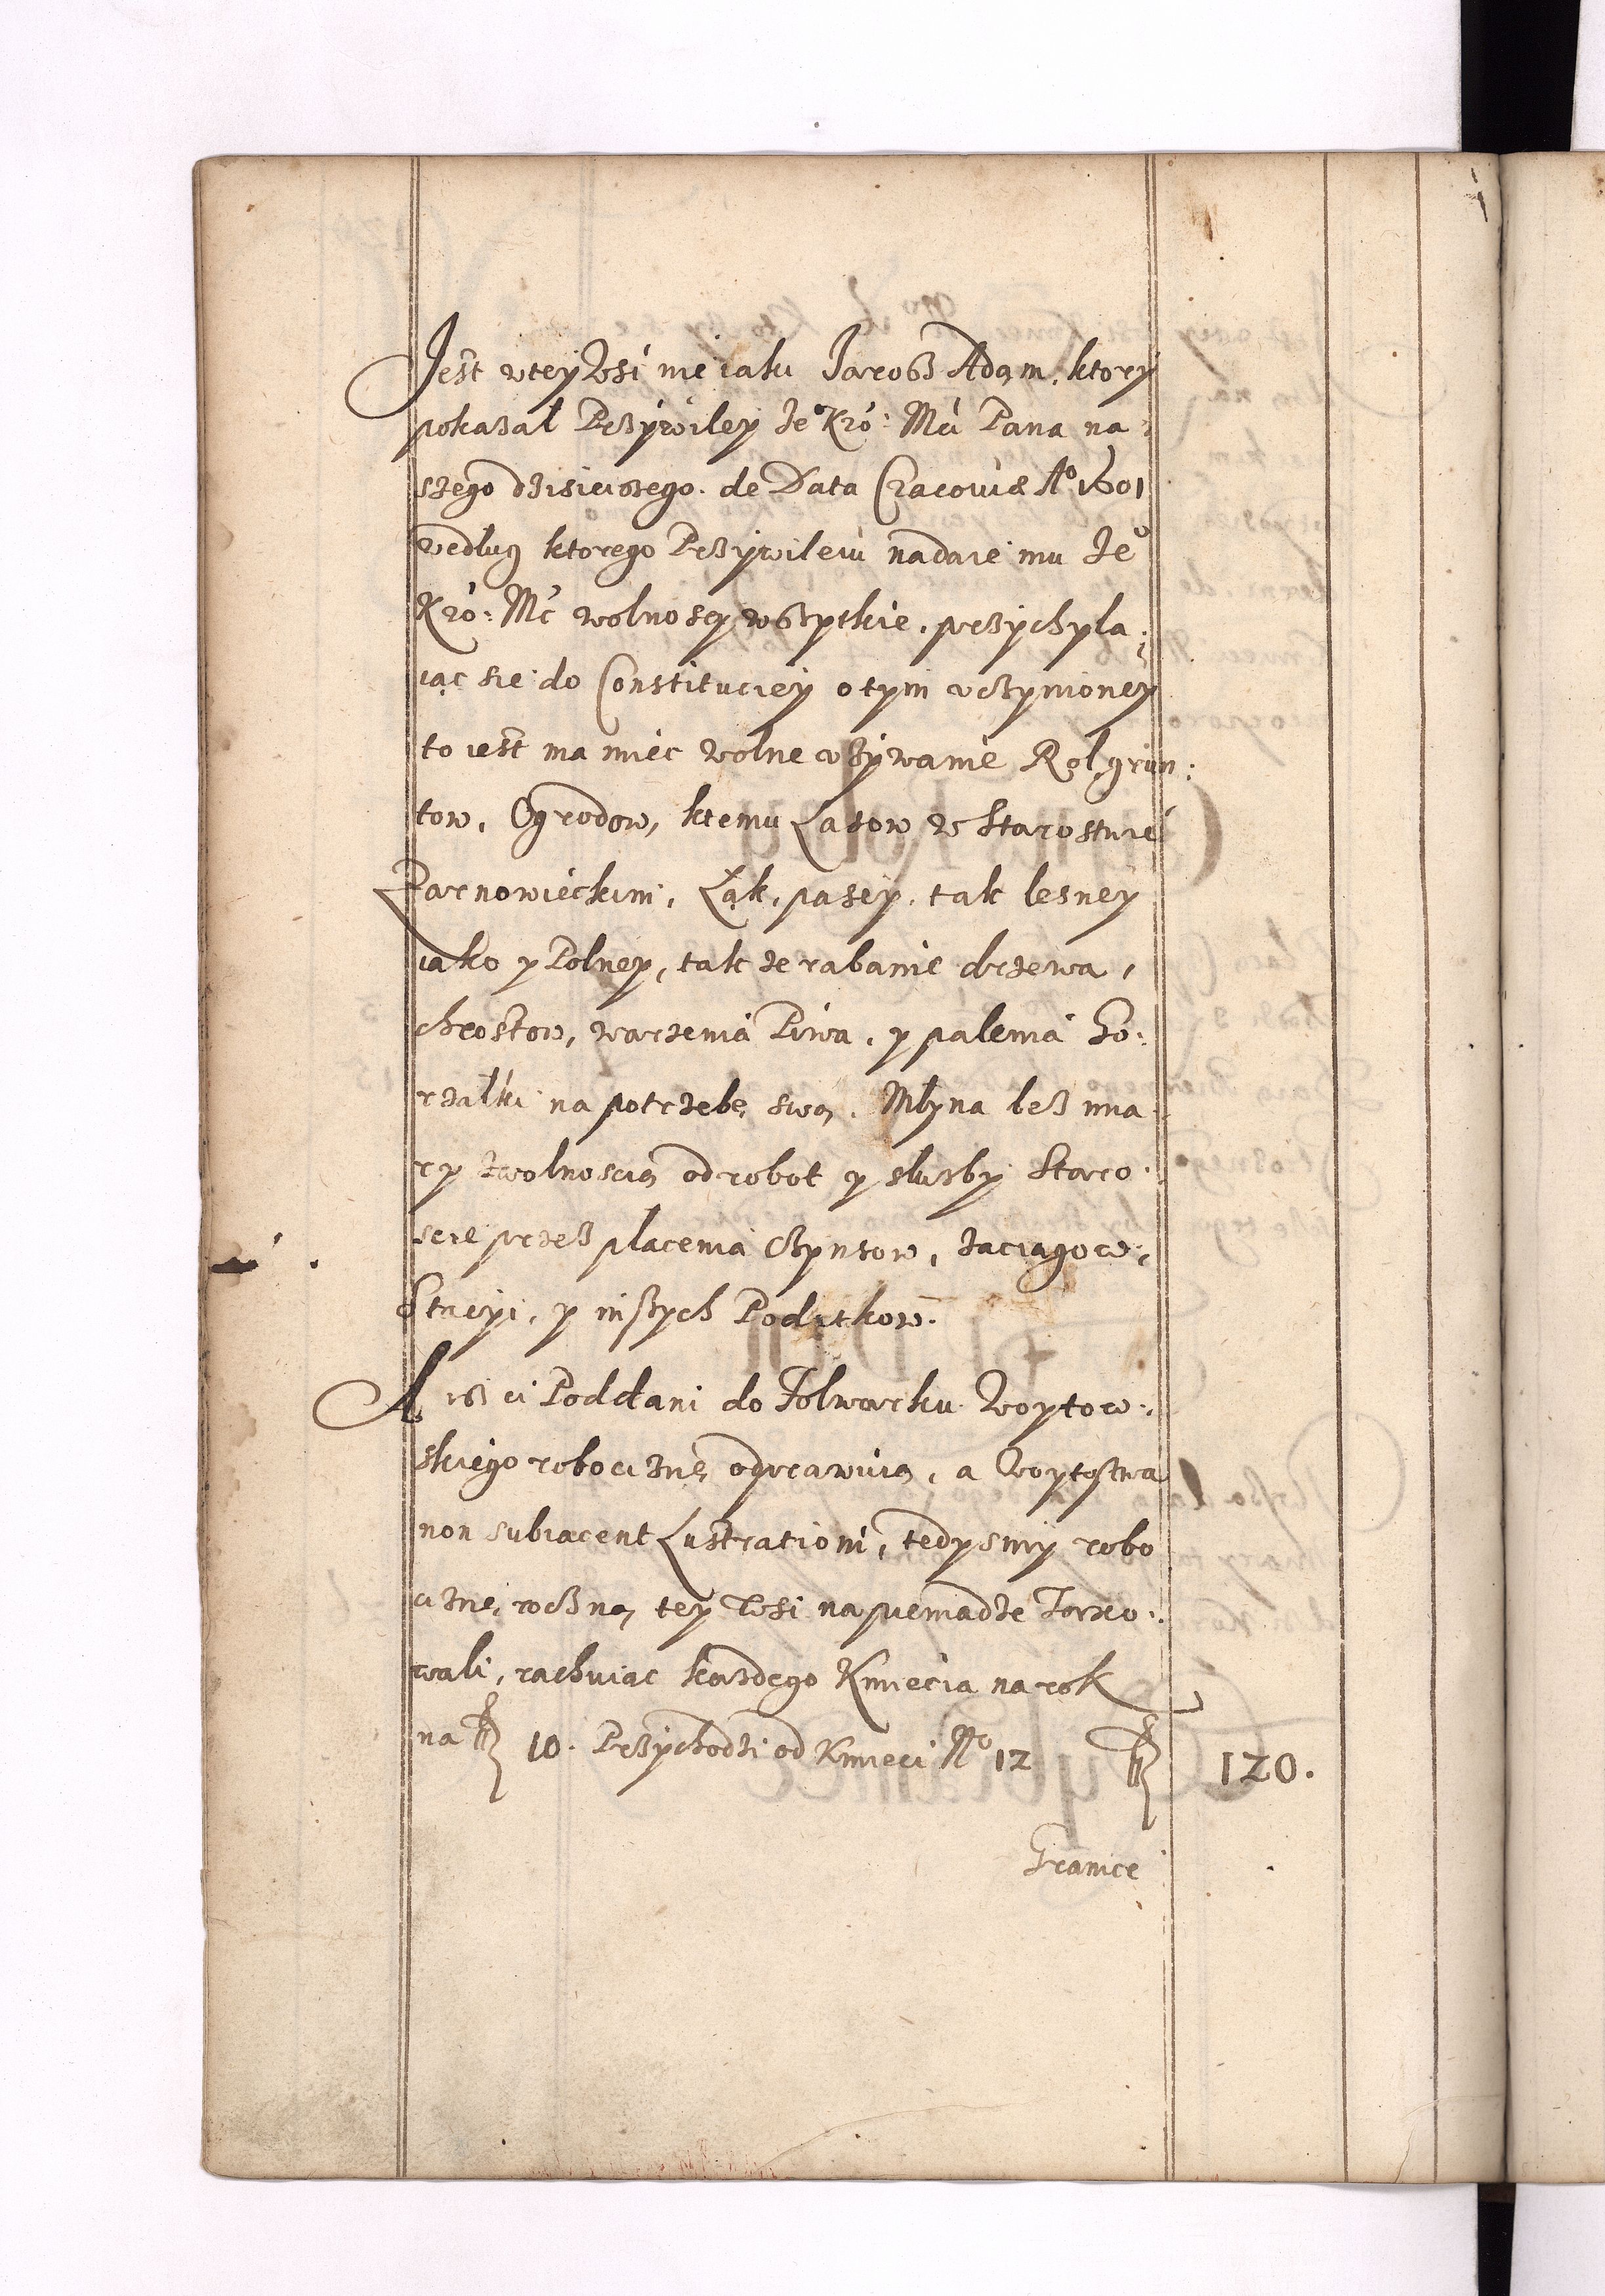 Jest wtey Wsi nieiaki Jarosz Adam, ktory
pokazał Przÿwiley Je° Kró: Mći Pana na:
szego dzisieiszego. de Data Cracouiæ A° 1601
według ktorego Przÿwileiu nadaie mu Je°
Kró: Mć wolnosci wszytkie, przÿchyla:
iąc sie do Constituciey o tym vczynioney
to iest ma miec wolne vżÿwanie Rol, grun:
tow, Ogrodow, ktemu Lasow w Starostwie
Parnowieckim, Łąk, pasey, tak lesney
iako y Polney, tak że rabanie drzewa,
chrostow, warzenia Piwa, y palenia Go:
rzałki na potrzebę swą. Młyna bez mia:
ry zwolnoscią od robot y służby Staro:
scie przez płacenia Czynszow, zaciągow,
Stacÿi, y inszych Podatkow.
A isz ci Poddani do Folwarku Woytow:
skiego robociznę odprawuią, a Woytostwa
non subiacent Lustrationi, tedysmy robo
ciznę roczną tey Wsi na pieniądze Taxo:
wali, rachuiąc każdego Kmiecia na rok
na fl 10. Przychodzi od Kmieci N° 12 fl 120.
Granice